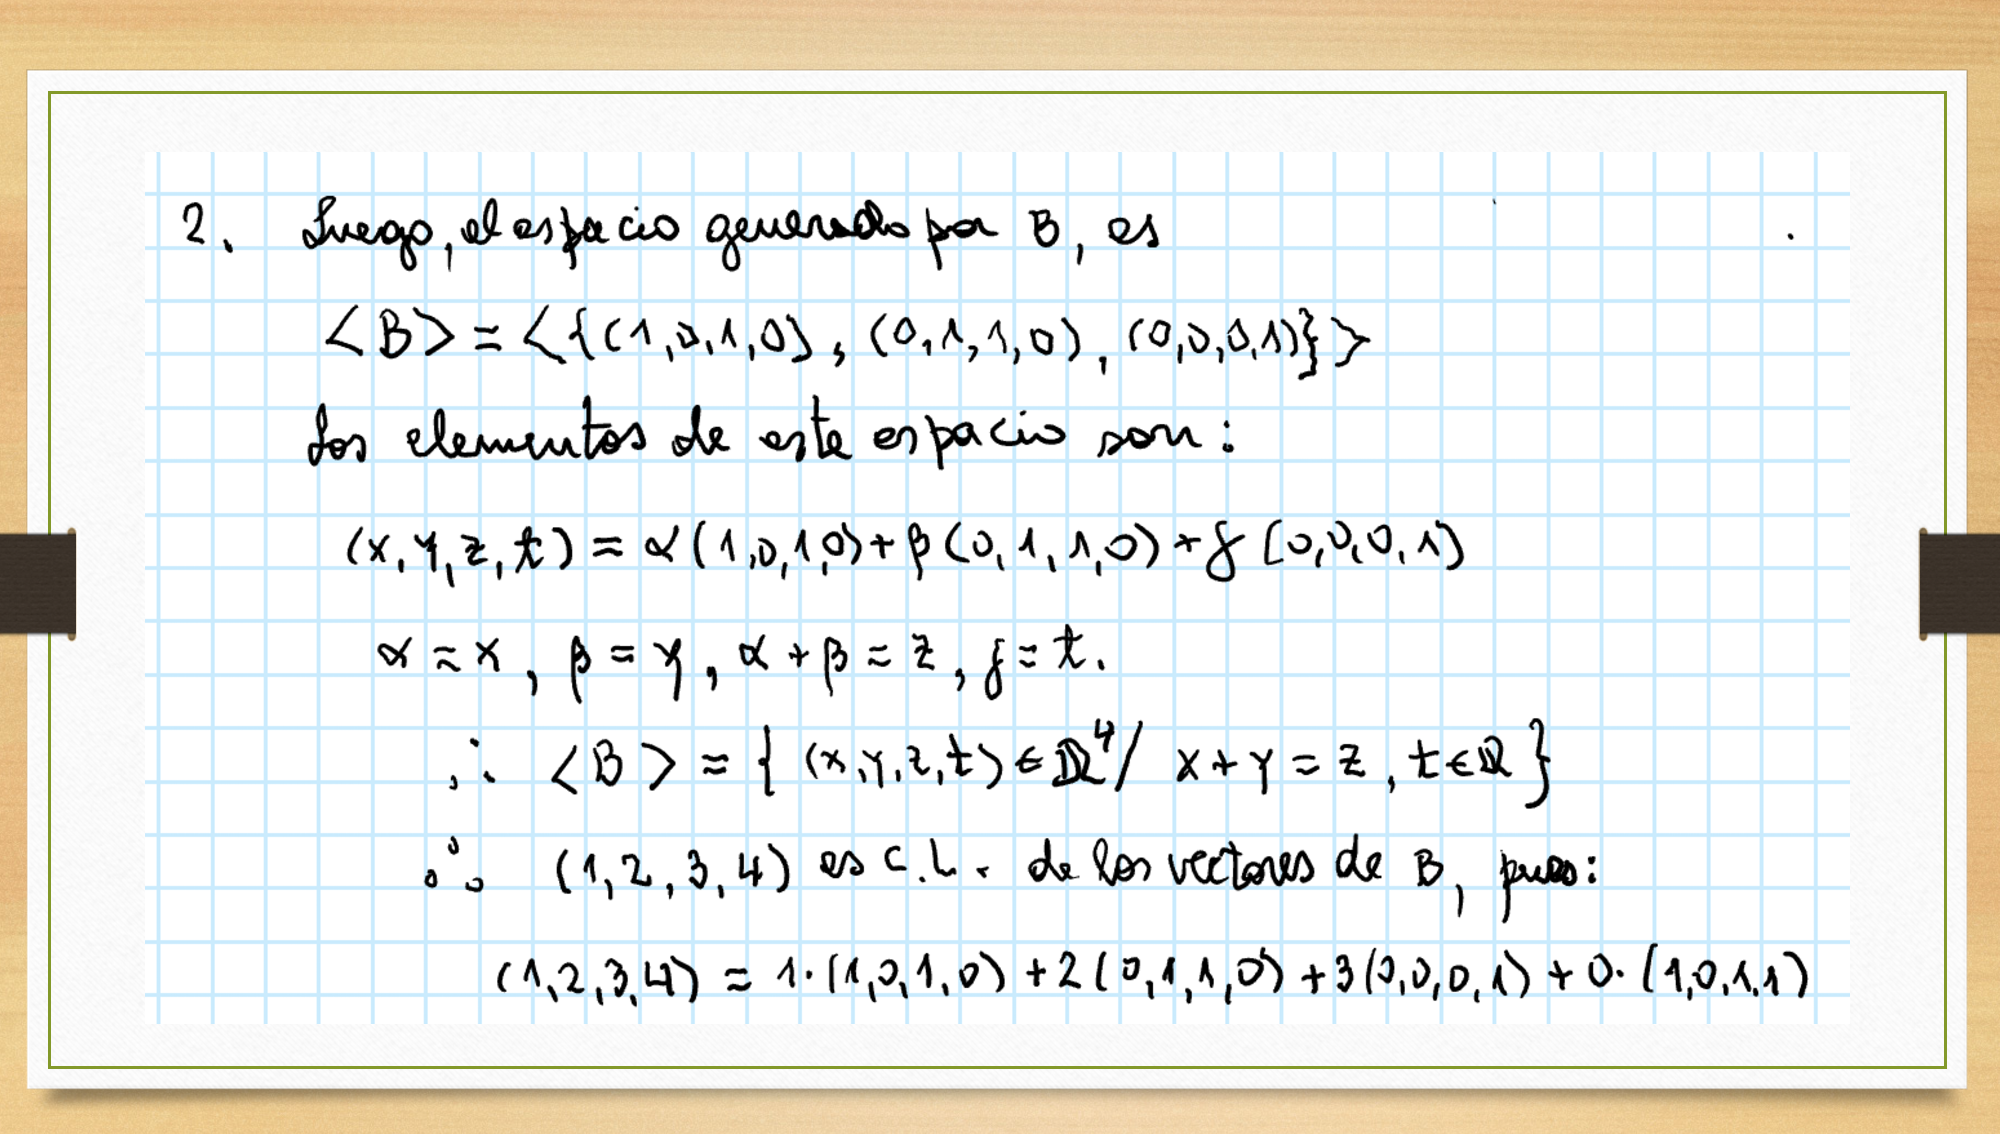 2. Luego, el espacio generado por B, es
<B> = <{(1,0,1,0), (0,1,1,0), (0,0,0,1)}>
Los elementos de este espacio son:
(x,y,z,t) = α(1,0,1,0)+β(0,1,1,0)+γ(0,0,0,1)
α = x, β = y, α+β = z, γ = t.
∴ <B> = {(x,y,z,t) ∈ ℝ⁴/ x+y = z, t∈ℝ}
∴ (1,2,3,4) es c.L. de los vectores de B, pues:
(1,2,3,4) = 1·(1,0,1,0)+2(0,1,1,0)+3(0,0,0,1)+0·(1,0,1,1)